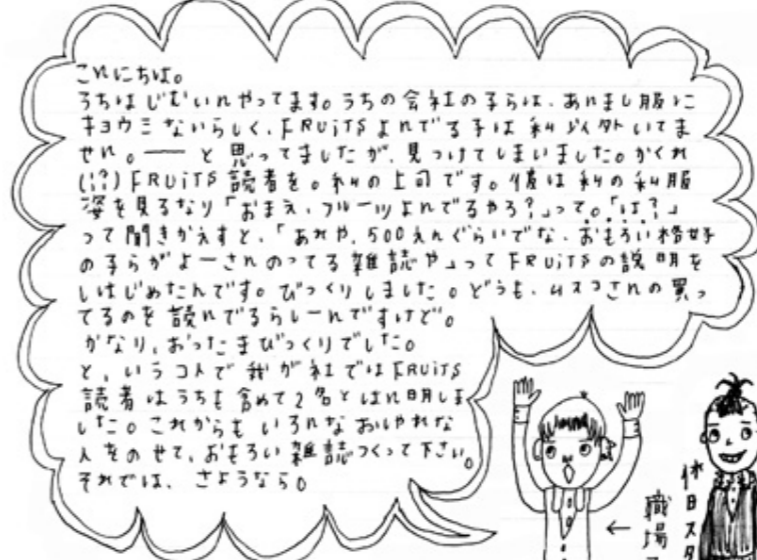 こんにちは。
うちはじむいんやってます。うちの会社の子らは、あんまし服に
キョウミないらしく、FRUiTSよんでる子は私以外いてま
せん。―― と思ってましたが、見つけてしまいました。かくれ
(!?)FRUiTS読者を。私の上司です。彼は私の私服
姿を見るなり「おまえ、フルーツよんでるやろ?」って。「は?」
って聞きかえすと、「あれや、500えんぐらいでな、おもろい格好
の子らがよーさんのってる雑誌や」ってFRUiTSの説明を
しはじめたんです。びっくりしました。どうも、ムスコさんの買っ
てるのを読んでるらしーんですけど。
かなり、おったまびっくりでした。
と、いうコトで我が社ではFRUiTS
読者はうちも含めて2名とはん明しま
した。これからもいろんなおしゃれな
人をのせて、おもろい雑誌つくって下さい。
それでは、さようなら。
←職場ス
休日スタ